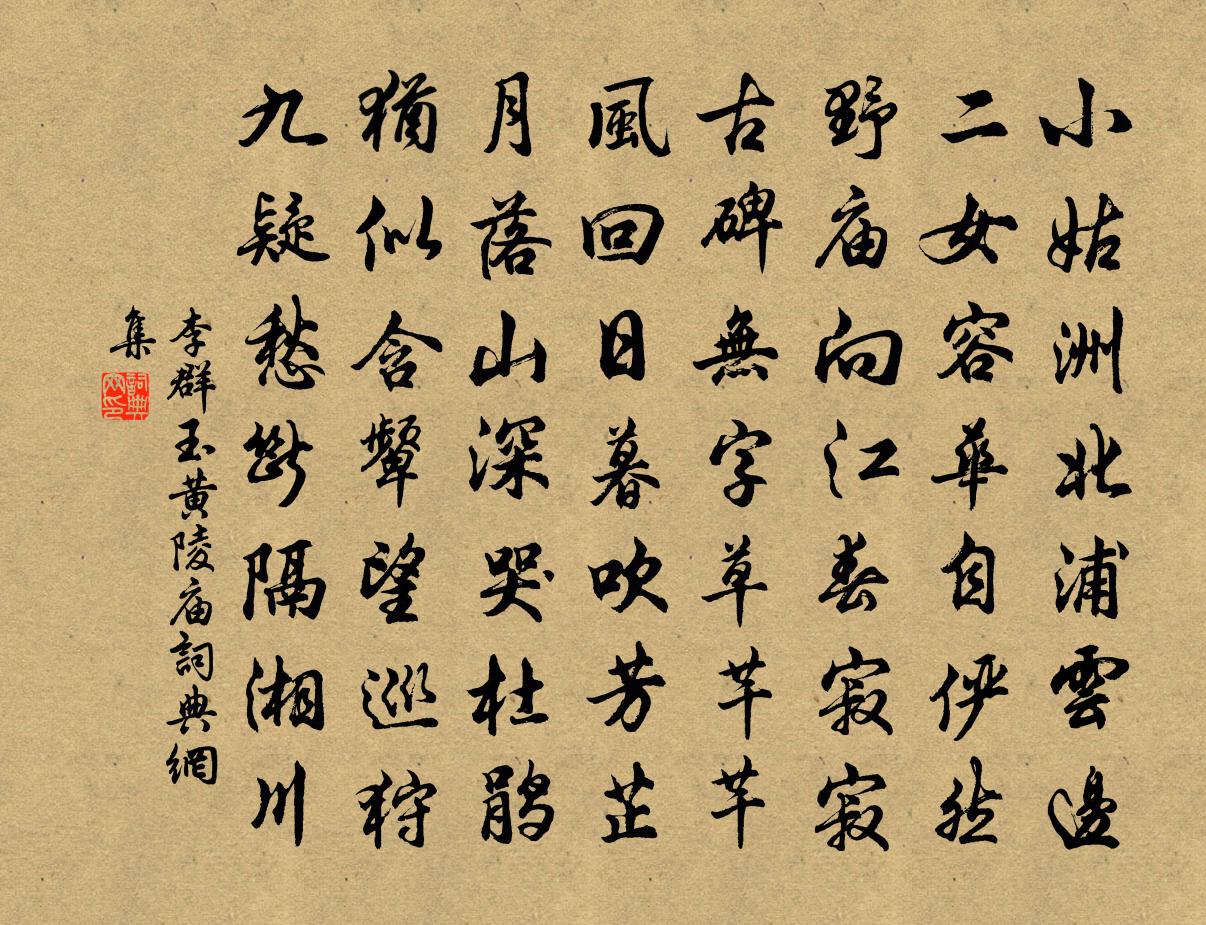 小姑洲北浦雲邊
二女容華自俨然
野庙向江春寂寂
古碑無字草芊芊
風回日暮吹芳芷
月落山深哭杜鹃
猶似含颦望巡狩
九疑愁斷隔湘川
李群玉黃陵庙詞典網
集
詞典
网印